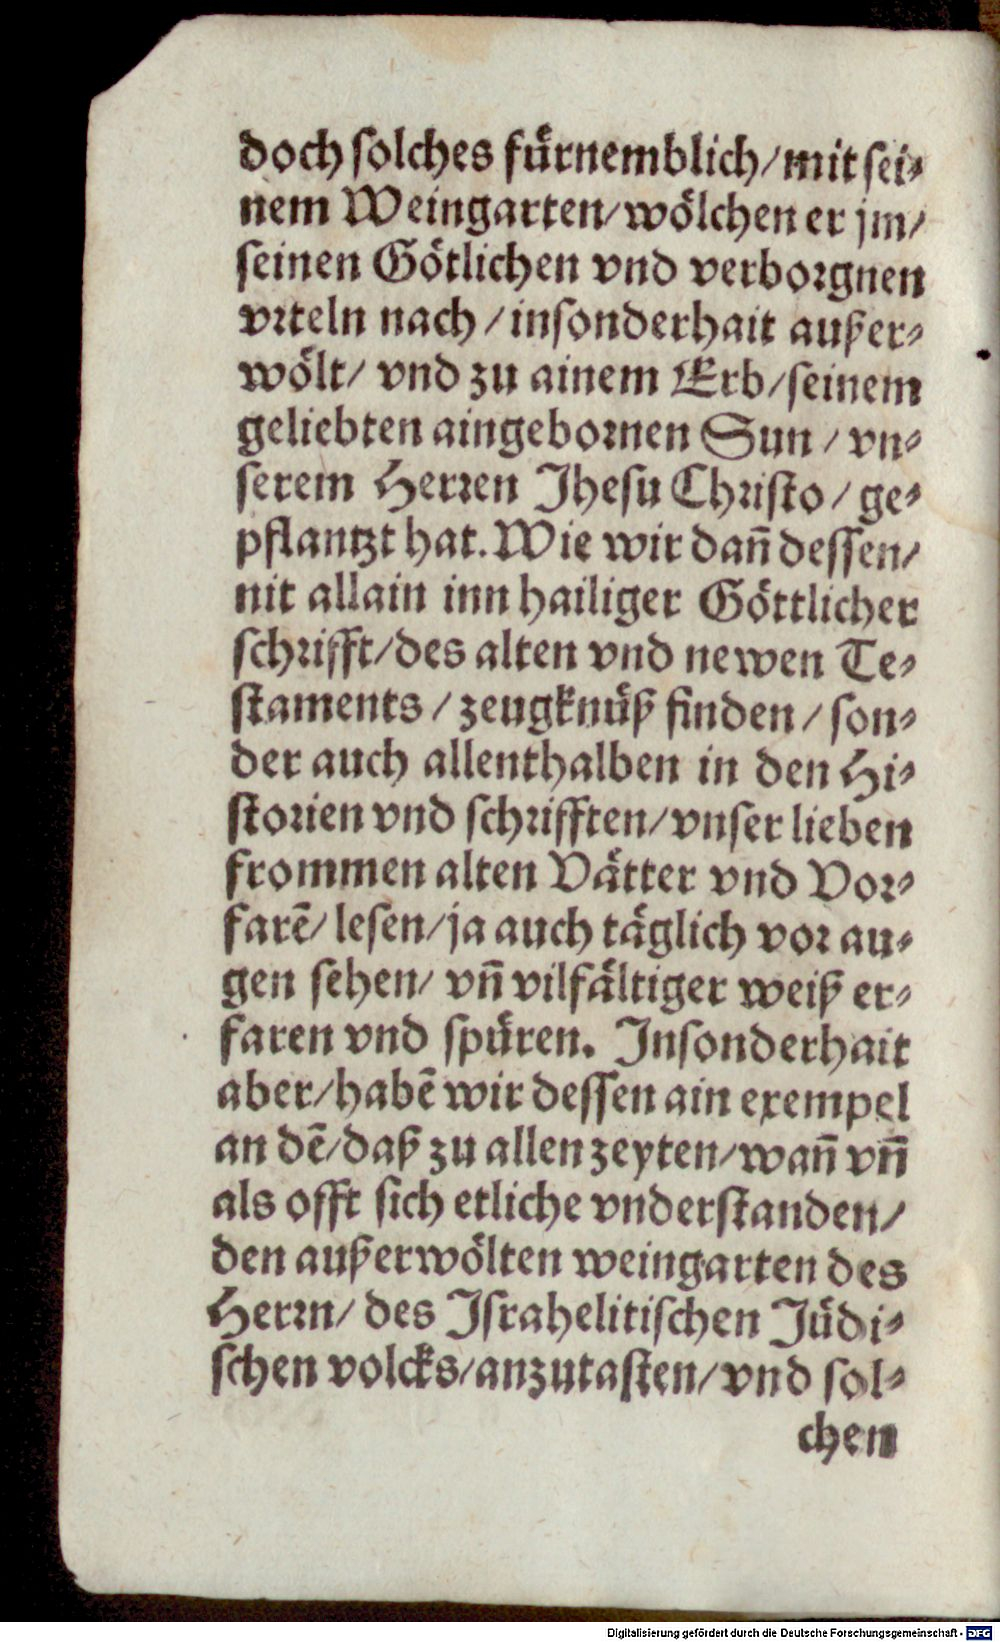 doch solches fürnemblich/ mit sei-
nem Weingarten/ wölchen er jm/
seinen Götlichen vnd verborgnen
vrteln nach/ insonderhait außer-
wölt/ vnd zu ainem Erb/ seinem
geliebten aingebornen Sun/ vn-
serem Herren Jhesu Christo/ ge-
pflantzt hat. Wie wir dañ dessen/
nit allain inn hailiger Göttlicher
schrifft/ des alten vnd newen Te-
staments/ zeugknüß finden/ son-
der auch allenthalben in den Hi-
storien vnd schrifften/ vnser lieben
frommen alten Vätter vnd Vor-
farẽ/ lesen/ ja auch täglich vor au-
gen sehen/ vñ vilfältiger weiß er-
faren vnd spüren. Insonderhait
aber/ habẽ wir dessen ain exempel
an dẽ/ daß zu allen zeyten/ wañ vñ
als offt sich etliche vnderstanden/
den außerwölten weingarten des
Herrn/ des Israhelitischen Jüdi-
schen volcks/ anzutasten/ vnd sol-
chen
Digitalisierung gefördert durch die Deutsche Forschungsgemeinschaft - DFG